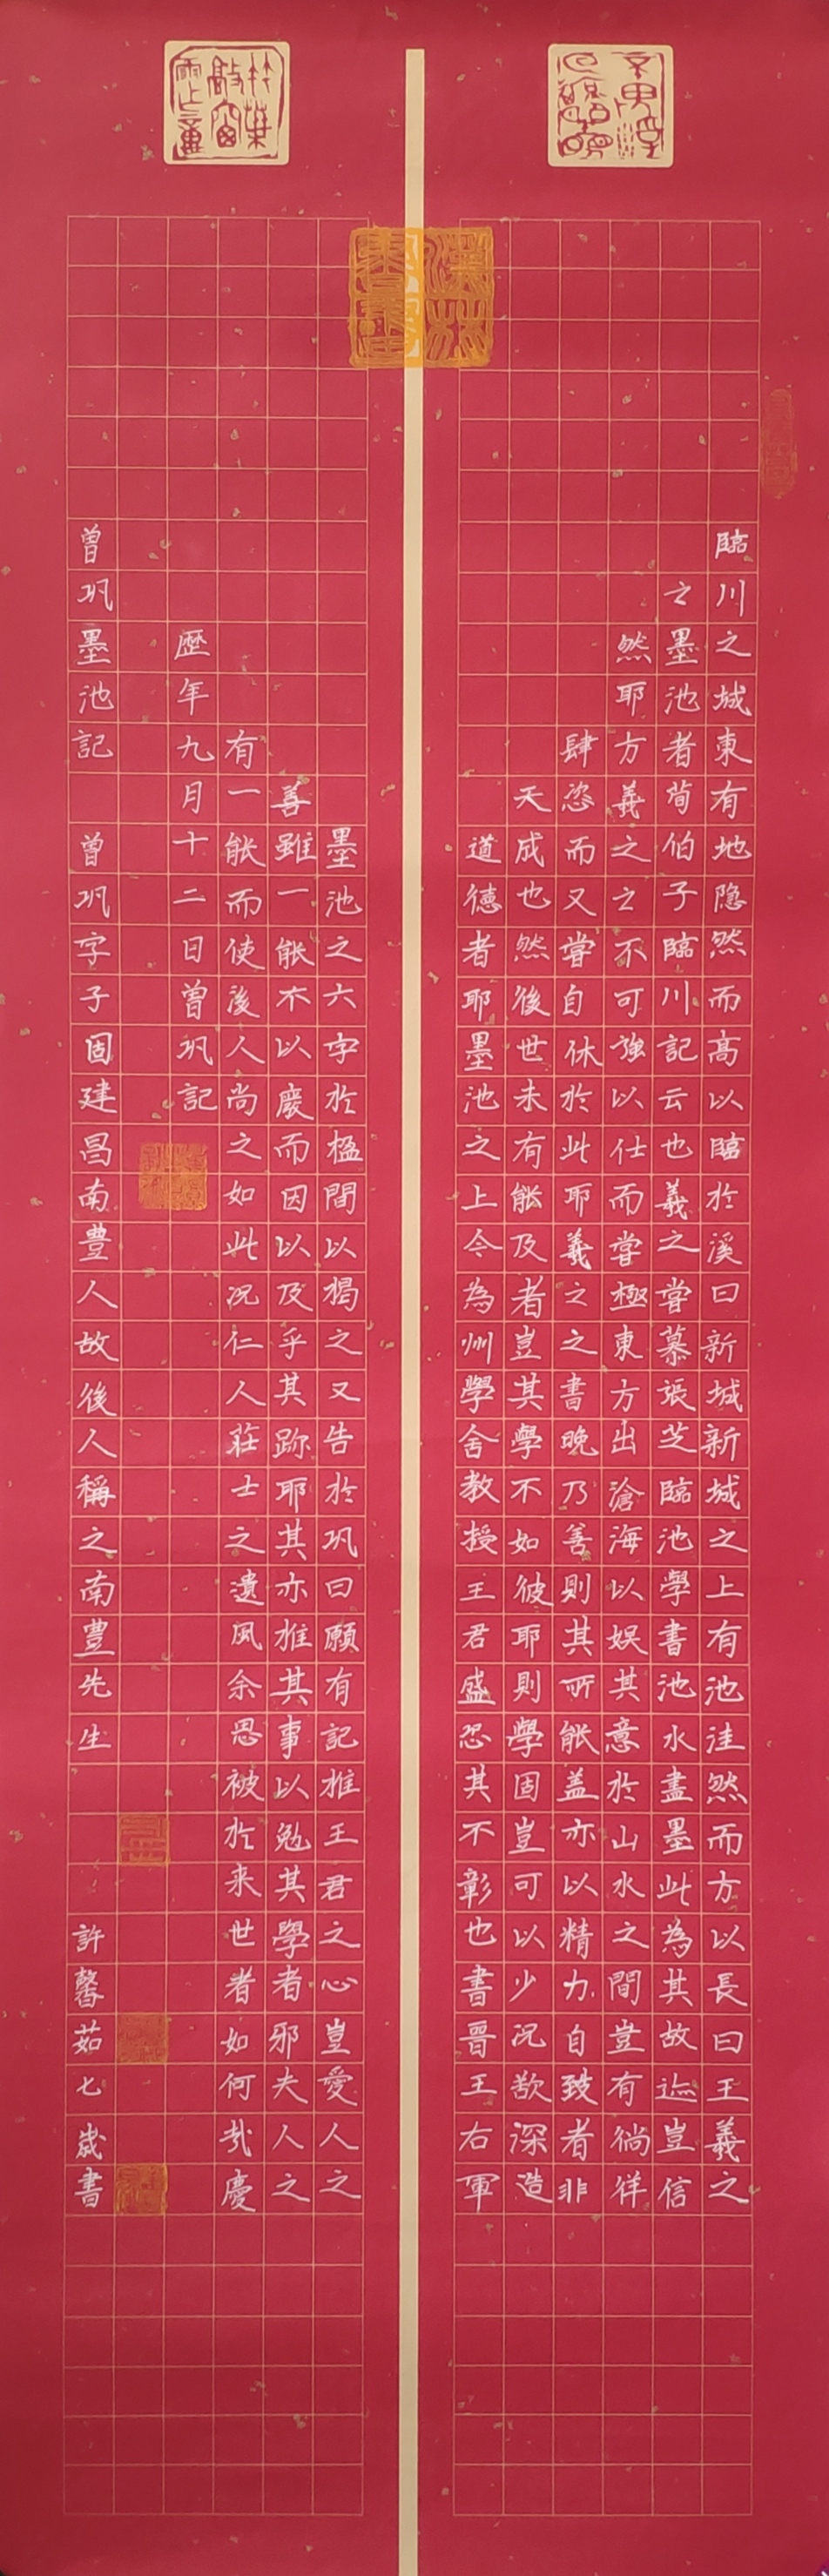 臨川之城東有地隐然而高以臨於溪曰新城新城之上有池洼然而方以長曰王羲之
之墨池者荀伯子臨川記云也羲之嘗慕張芝臨池學書池水盡墨此為其故迹豈信
然耶方羲之之不可強以仕而嘗極東方出滄海以娱其意於山水之間豈有徜徉
肆恣而又嘗自休於此耶羲之之書晚乃善則其所能盖亦以精力自致者非
天成也然後世未有能及者豈其學不如彼耶則學固豈可以少况欲深造
道德者耶墨池之上今為州學舍教授王君盛恐其不彰也書晋王右軍
墨池之六字於楹間以揭之又告於巩曰願有記推王君之心豈愛人之
善雖一能不以廢而因以及乎其跡耶其亦推其事以勉其學者邪夫人之
有一能而使後人尚之如此况仁人莊士之遺風余恩被於来世者如何哉慶
歷年九月十二日曾巩記
曾巩墨池記 曾巩字子固建昌南豊人故後人稱之南豊先生 許馨茹七歲書